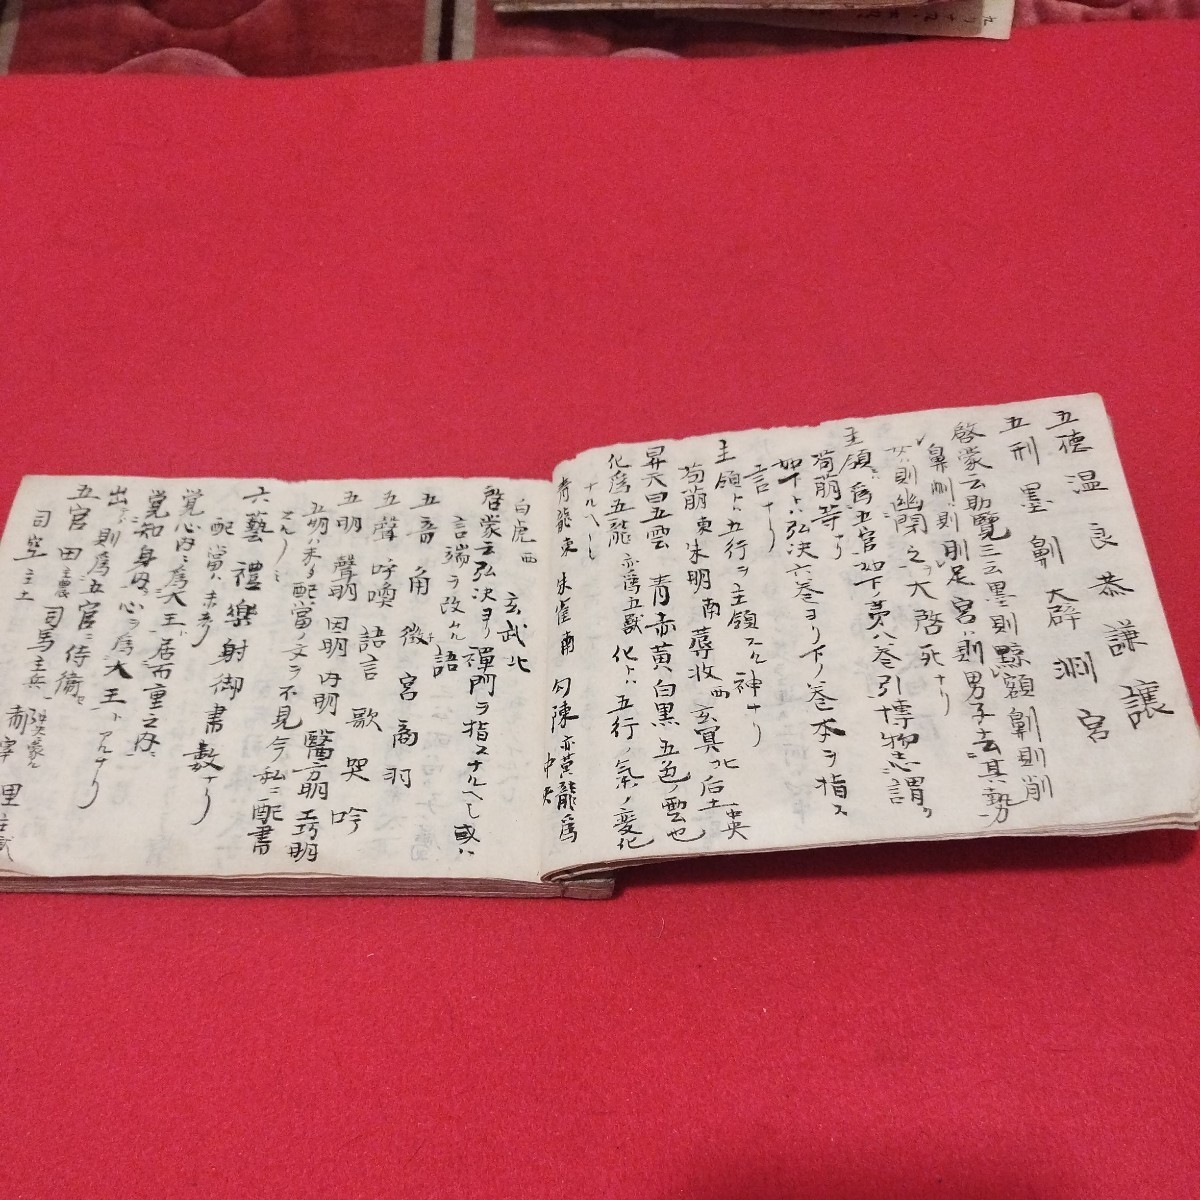 五徳 温 良 恭 謙 讓
五刑 墨 劓 大辟 剕 宮
啓蒙云助覽三云墨則黥額劓則削
鼻剕則刖足宮ハ則男子去其勢
女ハ則幽閉之ヲ大啓死ナリ
主領ニ為五官如下ノ第八巻引博物志謂ク言
苟萠等ナリ
如下ト弘决六巻ヨリ下ノ巻本ヲ指ス
言ナリ
主領ト五行ヲ主領スル神ナリ
苟萠東朱明南蓐收西玄冥北后土中央
昇天曰五雲 青赤黄白黒五色ノ雲也
化為五龍 亦為五獸化トハ五行ノ氣ノ変化
ナルヘシ
青龍東 朱雀南 勾陳亦黄龍為中央
白虎西 玄武北
啓蒙云弘决ヨリ禪門ヲ指スナルヘし或ハ
言端ヲ改ルル語
五音 角 徴 宮 商 羽
五聲 呼喚 語言 歌 哭 吟
五明 聲明 因明 内明 醫方明 工巧明
五明ハ未タ配當ノ文ヲ不見今私ニ配書
六藝 禮樂射御書数ナリ
配當ハ未考
覚心内ニ為大王ト居而重之内ニ
覚知身内ニ心ヲ為大王トアルナリ
出ルトキハ則為五官ニ侍衛セ
五官 田主農 司馬主兵
司空主土